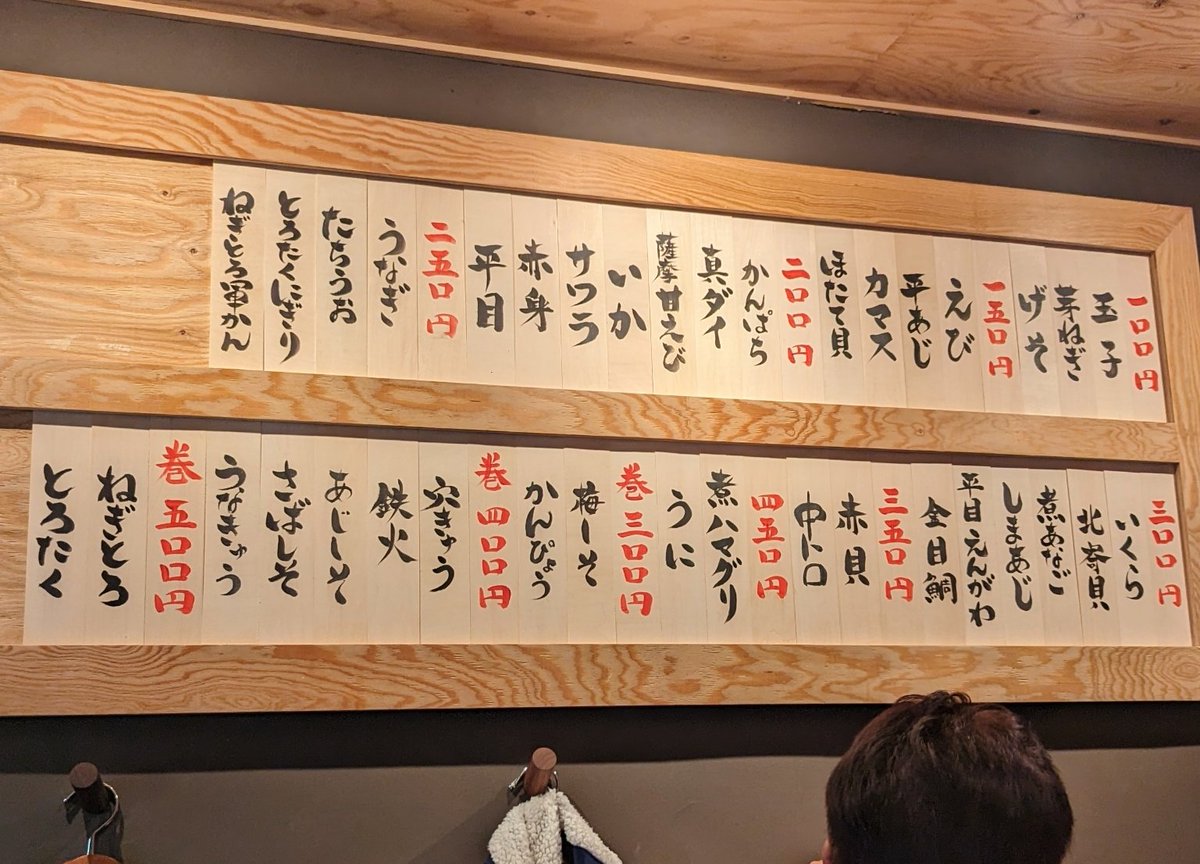 一〇〇円
玉子
芽ねぎ
げそ
一五〇円
えび
平あじ
カマス
ほたて貝
二〇〇円
かんぱち
真ダイ
薩摩甘えび
いか
サワラ
赤身
平目
二五〇円
うなぎ
たちうお
とろたくにぎり
ねぎとろ軍かん
三〇〇円
いくら
北寄貝
煮あなご
しまあじ
平目えんがわ
金目鯛
三五〇円
赤貝
中トロ
四五〇円
煮ハマグリ
うに
巻三〇〇円
梅しそ
かんぴょう
巻四〇〇円
穴きゅう
鉄火
あじしそ
さばしそ
うなきゅう
巻五〇〇円
ねぎとろ
とろたく